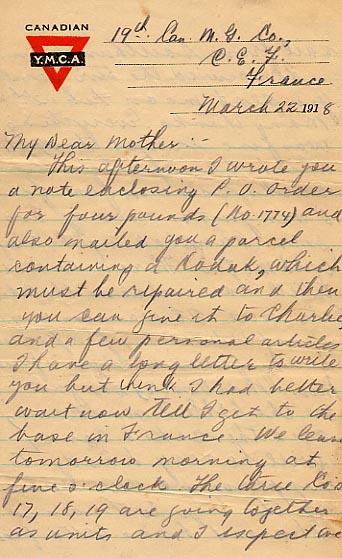 CANADIAN
Y.M.C.A.
19th Can. M. G. Co.,
C. E. F.
France
March 22 1918
My Dear Mother:-
This afternoon I wrote you
a note enclosing P. O. Order
for four pounds (No. 1774) and
also mailed you a parcel
containing a Kodak, which
must be repaired and then
you can give it to Charlie,
and a few personal articles
I have a long letter to write
you but think I had better
wait now till I get to the
base in France. We leave
tomorrow morning at
five o'clock. The three Co's
17, 18, 19 are going together
as units and I expect we